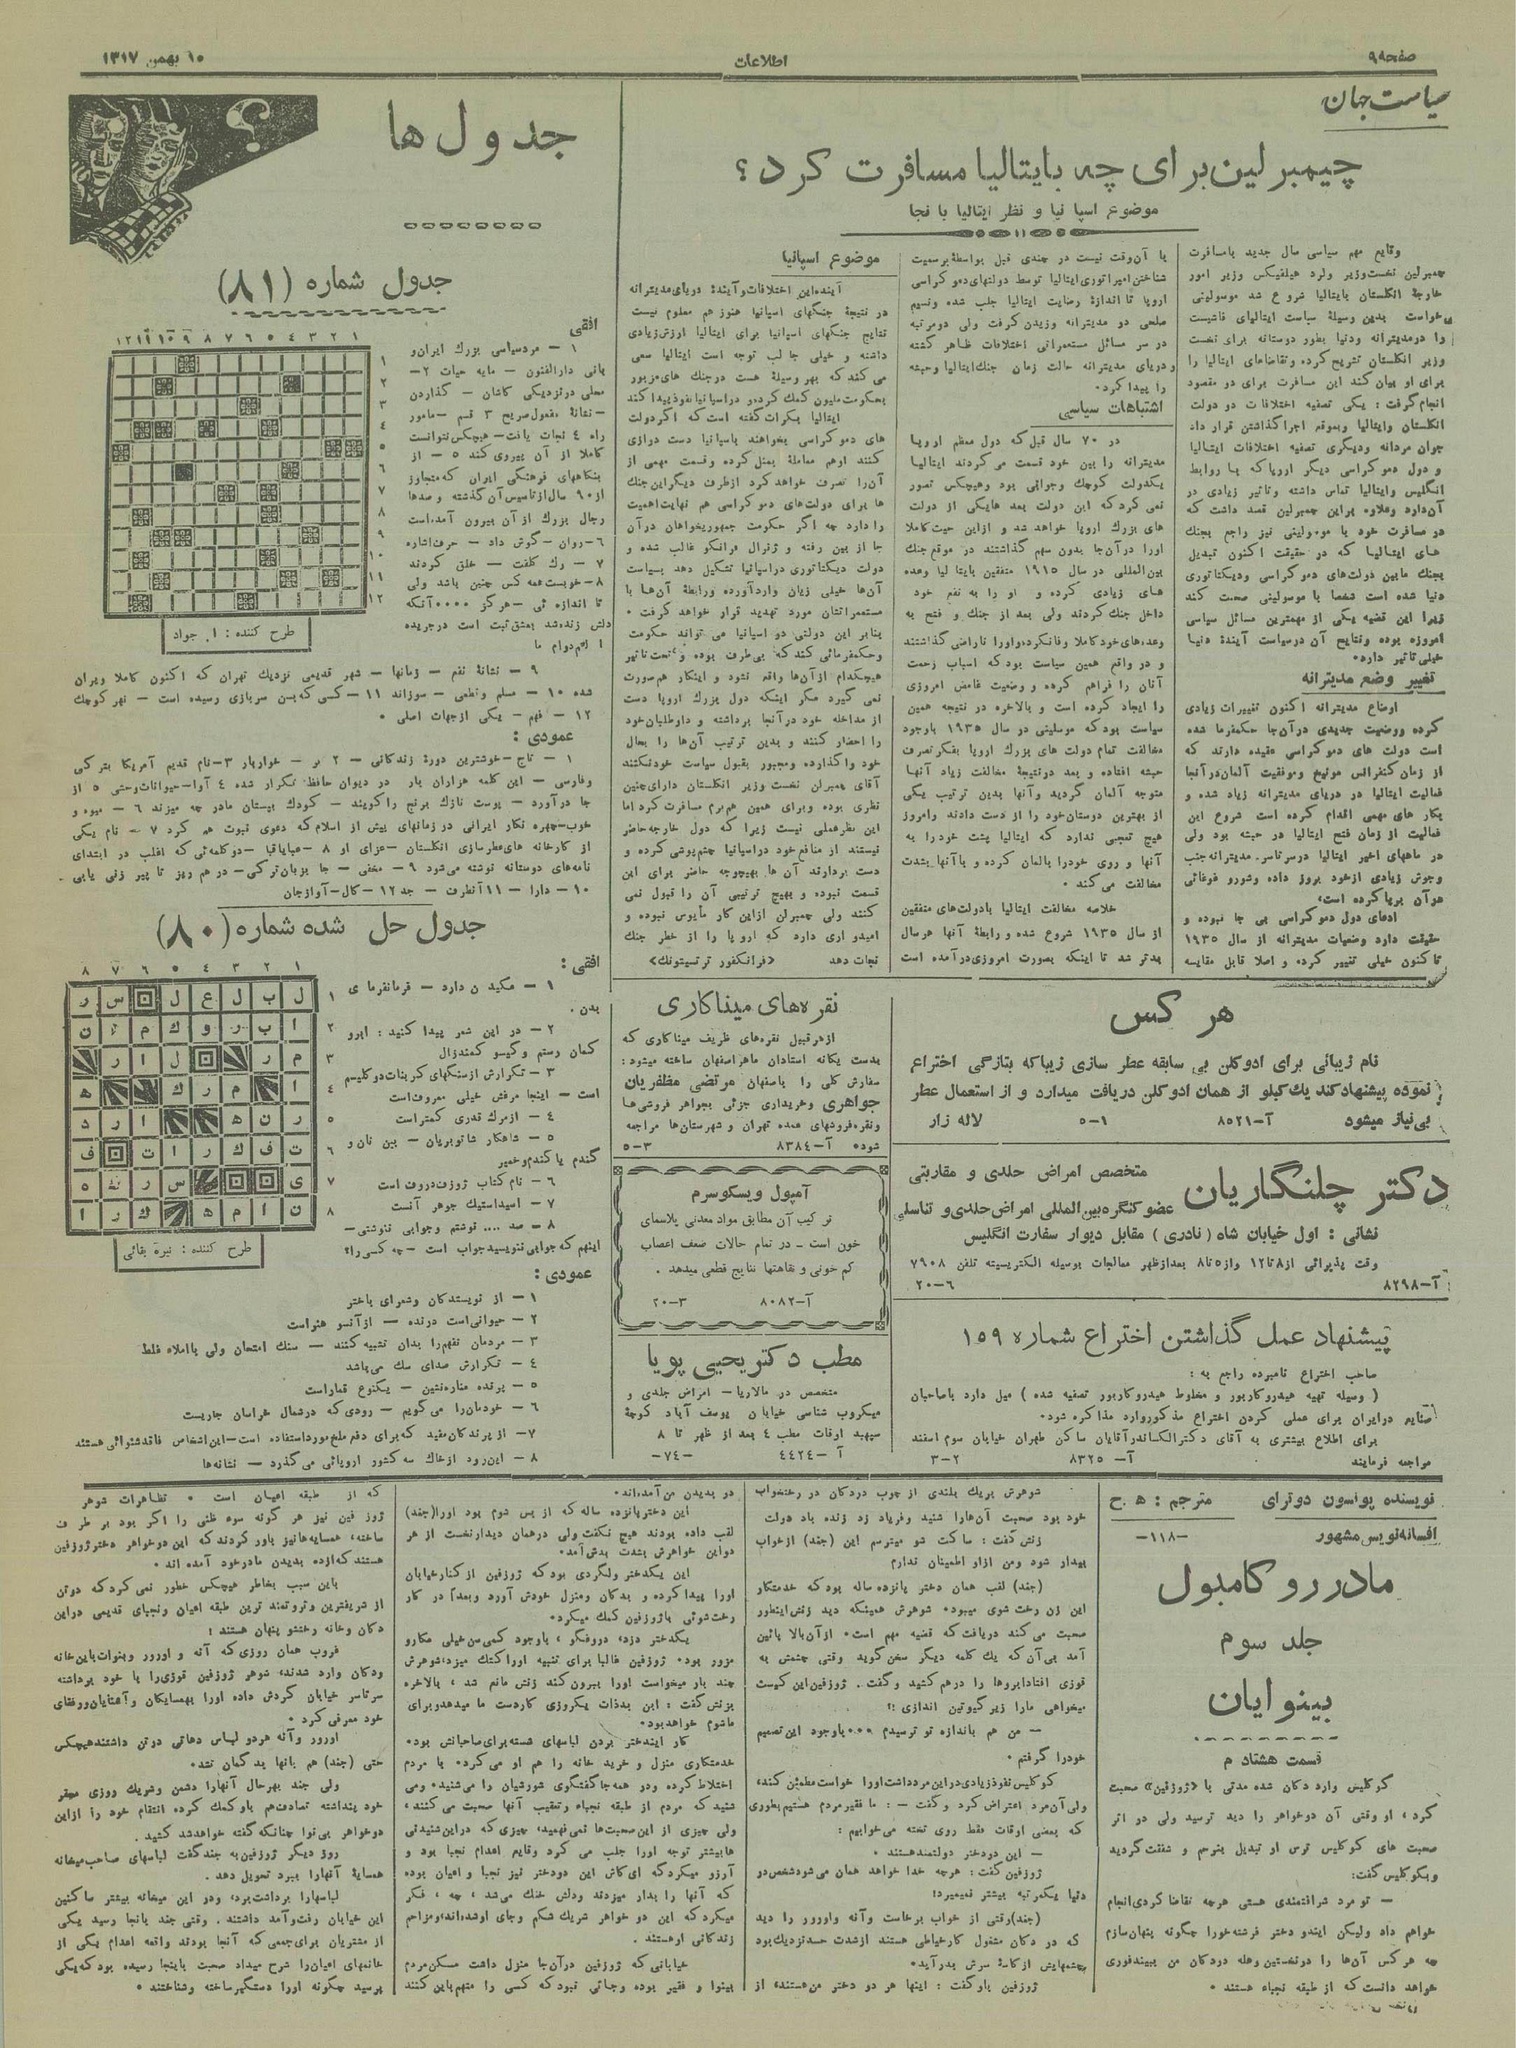 صفحه ۹
اطلاعات
۱۰ بهمن ۱۳۱۷
سیاست جهان
چیمبرلین برای چه بایتالیا مسافرت کرد؟
موضوع اسپانیا و نظر ایتالیا بآنجا
وقایع مهم سیاسی سال جدید بامسافرت
چمبرلین نخست‌وزیر ولرد هیلفیکس وزیر امور
خارجهٔ انگلستان بایتالیا شروع شد موسولینی
خواست بدین وسیلهٔ سیاست ایتالیای فاشیست
را درمدیترانه ودنیا بطور دوستانه برای نخست
وزیر انگلستان تشریح کرده وتقاضاهای ایتالیا را
برای او بیان کند این مسافرت برای دو مقصود
انجام گرفت: یکی تصفیه اختلافات دو دولت
انگلستان وایتالیا وبموقع اجرا گذاشتن قرار داد
جوان مردانه ودیگری تصفیه اختلافات ایتالیا
و دول دموکراسی دیگر اروپا که با روابط
انگلیس وایتالیا تماس داشته وتاثیر زیادی در
آن‌دارد وعلاوه براین چمبرلین قصد داشت که
در مسافرت خود با موسولینی نیز راجع بجنك
های ایتالیا که در حقیقت اکنون تبدیل
بجنك مابین دولت‌های دموکراسی ودیکتاتوری
دنیا شده است شخصا با موسولینی صحبت کند
زیرا این قضیه یکی از مهمترین مسائل سیاسی
امروزه بوده ونتایج آن درسیاست آیندهٔ دنیا
خیلی تاثیر دارد.
تغییر وضع مدیترانه
اوضاع مدیترانه اکنون تغییرات زیادی
کرده ووضعیت جدیدی در آن‌جا حکمفرما شده
است دولت های دموکراسی عقیده دارند که
از زمان کنفرانس مونیخ وموفقیت آلمان‌در آنجا
فعالیت ایتالیا در دریای مدیترانه زیاد شده و
بکار های مهمی اقدام کرده است شروع این
فعالیت از زمان فتح ایتالیا در حبشه بود ولی
در ماههای اخیر ایتالیا درسرتاسر. مدیترانه جنب
وجوش زیادی ازخود بروز داده وشورو غوغائی
در آن برپا کرده است؛
ادعای دول دموکراسی بی جا نبوده و
حقیقت دارد وضعیات مدیترانه از سال ۱۹۳۵
تا کنون خیلی تغییر کرده و اصلا قابل مقایسه
با آن‌وقت نیست در چندی قبل بواسطهٔ برسمیت
شناختن امپراتوری ایتالیا توسط دولتهای دموکراسی
اروپا تا اندازهٔ رضایت ایتالیا جلب شده ونسیم
صلحی در مدیترانه وزیدن گرفت ولی دومرتبه
در سر مسائل مستعمراتی اختلافات ظاهر گشته
ودریای مدیترانه حالت زمان جنك‌ایتالیا وحبشه
را پیدا کرد.
اشتباهات سیاسی
در ۷۰ سال قبل که دول معظم اروپا
مدیترانه را بین خود قسمت می کردند ایتالیا
یکدولت کوچك وجوانی بود وهیچکس تصور
نمی کرد که این دولت بعد هایکی از دولت
های بزرك اروپا خواهد شد و ازاین حیث کاملا
اورا در آن‌جا بدون سهم گذاشتند در موقع جنك
بین‌المللی در سال ۱۹۱۵ متفقین بایتا لیا وعده
های زیادی کرده و او را به نفع خود
داخل جنك کردند ولی بعد از جنك و فتح به
وعده‌های خود کاملا وفانکرده واورا ناراضی گذاشتند
و در واقع همین سیاست بود که اسباب زحمت
آنان را فراهم کرده و وضعیت غامض امروزی
را ایجاد کرده است و بالاخره در نتیجه همین
سیاست بود که موسلینی در سال ۱۹۳۵ باوجود
مخالفت تمام دولت های بزرك اروپا بفکر تصرف
حبشه افتاده و بعد درنتیجهٔ مخالفت زیاد آنها
متوجه آلمان گردید وآنها بدین ترتیب یکی
از بهترین دوستان‌خود را از دست دادند وامروز
هیچ تعجبی ندارد که ایتالیا پشت خودرا به
آنها و روی خودرا بالمان کرده و باآنها بشدت
مخالفت می‌کند.
خلاصه مخالفت ایتالیا بادولت‌های متفقین
از سال ۱۹۳۵ شروع شده و رابطهٔ آنها هرسال
بدتر شد تا اینکه بصورت امروزی در آمده است
موضوع اسپانیا
آینده‌این اختلافات‌وآیندهٔ دریای‌مدیترانه
در نتیجهٔ جنگهای اسپانیا هنوز هم معلوم نیست
نتایج جنگهای اسپانیا برای ایتالیا ارزش زیادی
داشته و خیلی جالب توجه است ایتالیا سعی
می کند که بهر وسیلهٔ هست درجنك های مزبور
بحکومت‌ملیون کمك کرده و دراسپانیا نفوذ پیدا کند
ایتالیا بکرات گفته است که اگر دولت
های دموکراسی بخواهند باسپانیا دست درازی
کنند اوهم معاملهٔ بمثل کرده وقسمت مهمی از
آن‌را تصرف خواهد کرد ازطرف دیگر این جنك
ها برای دولت‌های دموکراسی هم نهایت اهمیت
را دارد چه اگر حکومت جمهوریخواهان در آن
جا از بین رفته و ژنرال فرانکو غالب شده و
دولت دیکتاتوری دراسپانیا تشکیل دهد بسیاست
آن‌ها خیلی زیان وارد آورده ورابطهٔ آن‌ها با
مستعمراتشان مورد تهدید قرار خواهد گرفت.
بنابر این دولتی در اسپانیا می تواند حکومت
وحکمفرمائی کند که بی‌طرف بوده و تحت‌تاثیر
هیچکدام از آن‌ها واقع نشود و اینکار هم‌صورت
نمی گیرد مگر اینکه دول بزرك اروپا دست
از مداخله خود در آنجا برداشته و داوطلبان‌خود
را احضار کنند و بدین ترتیب آن‌ها را بحال
خود واگذارده ومجبور بقبول سیاست خودنکنند
آقای چمبرلن نخست وزیر انگلستان دارای‌چنین
نظری بوده وبرای همین هم برم مسافرت کرد اما
این نظرعملی نیست زیرا که دول خارجه حاضر
نیستند از منافع خود دراسپانیا چشم‌پوشی کرده و
دست بردارند آن ها بهیچوجه حاضر برای این
قسمت نبوده و بهیچ ترتیبی آن را قبول نمی
کنند ولی چمبرلن ازاین کار مأیوس نبوده و
امیدواری دارد که اروپا را از خطر جنك
نجات دهد «فرانکفور ترتسیتونك»
هر کس
نام زیبائی برای ادوکلن بی سابقه عطر سازی زیباکه بتازگی اختراع
نموده پیشنهاد کند یك کیلو از همان ادوکلن دریافت میدارد و از استعمال عطر
بی‌نیاز میشود آ-۸۵۲۱ ۱-۵ لاله زار
دکتر چلنگاریان
متخصص امراض جلدی و مقاربتی
عضو کنگره بین‌المللی امراض جلدی و تناسلی
نشانی: اول خیابان شاه (نادری) مقابل دیوار سفارت انگلیس
وقت پذیرائی از ۸تا۱۲ واز۵تا۸ بعدازظهر معالجات بوسیله الکتریسیته تلفن ۷۹۰۸
آ-۸۲۹۸ ۶-۲۰
پیشنهاد عمل گذاشتن اختراع شماره ۱۵۹
صاحب اختراع نامبرده راجع به:
(وسیله تهیه هیدروکاربور و مخلوط هیدروکاربور تصفیه شده) میل دارد باصاحبان
صنایع درایران برای عملی کردن اختراع مذکوروارد مذاکره شود.
برای اطلاع بیشتری به آقای دکترالکساندرآقایان ساکن طهران خیابان سوم اسفند
مراجعه فرمایند آ-۸۳۲۵ ۲-۳
نقره‌های میناکاری
ازهرقبیل نقره‌های ظریف میناکاری که
بدست یگانه استادان ماهراصفهان ساخته میشود:
سفارش کلی را باصفهان مرتضی مظفریان
جواهری وخریداری جزئی بجواهر فروشی‌ها
ونقره‌فروشهای عمده تهران و شهرستان‌ها مراجعه
شود. آ-۸۳۸۴ ۳-۵
آمپول ویسکوسرم
ترکیب آن مطابق مواد معدنی پلاسمای
خون است - در تمام حالات ضعف اعصاب
کم خونی و نقاهتها نتایج قطعی میدهد.
آ-۸۰۸۲ ۳-۲۰
مطب دکتر یحیی پویا
متخصص در مالاریا- امراض جلدی و
میکروب شناسی خیابان یوسف آباد کوچهٔ
سپهبد اوقات مطب ۴ بعد از ظهر تا ۸
آ-۴۴۲۴ -۷۴-
جدول ها
جدول شماره (۸۱)
۱ ۲ ۳ ۴ ۵ ۶ ۷ ۸ ۹ ۱۰ ۱۱ ۱۲
۱
۲
۳
۴
۵
۶
۷
۸
۹
۱۰
۱۱
۱۲
طرح کننده: ا. جواد
افقی
۱ - مردسیاسی بزرك ایران‌و
بانی دارالفنون - مایه حیات ۲-
محلی درنزدیکی کاشان - گذاردن
-نشانهٔ مفعول صریح ۳ قسم -مامور
راه ۴ نجات یافت- هیچکس نتوانست
کاملا از آن پیروی کند ۵ - از
بنگاههای فرهنگی ایران که متجاوز
از ۹۰ سال از تاسیس آن گذشته و صدها
رجال بزرك از آن بیرون آمده‌است
۶- روان - گوش داد - حرف‌اشاره
۷ - رك کلفت - خلق کردند
۸- خوبست‌همه کس چنین باشد ولی
تا اندازه ئی - هرگز ۰۰۰۰ آنکه
دلش زنده‌شد بعشق ثبت است درجریده
۹ - نشانهٔ نفع - زمانها - شهر قدیمی نزدیك تهران که اکنون کاملا ویران
شده ۱۰ - مسلم وقطعی - سوزاند ۱۱ - کسی که بسن سربازی رسیده است - نهر کوچك
۱۲ - فهم - یکی ازجهات اصلی.
عمودی:
۱ - تاج-خوشترین دورهٔ زندگانی - ۲ بر - خواربار ۳-نام قدیم آمریکا بترکی
وفارسی - این کلمه هزاران بار در دیوان حافظ تکرار شده ۴ آوا- حیوانات‌وحشی ۵ از
جا درآورد - پوست نازك برنج راگویند - کودك بپستان مادر چه میزند ۶ - میوه و
خوب-چهره نگار ایرانی در زمانهای پیش از اسلام‌که دعوی نبوت هم کرد ۷ - نام یکی
از کارخانه های‌عطرسازی انگلستان -عزای او ۸ -عبایاقبا -دوکلمه‌ئی که اغلب در ابتدای
نامه‌های دوستانه نوشته می‌شود ۹ - مخفی - جا بزبان‌ترکی - درهم ریز تا پیر زنی یابی.
۱۰ - دارا - ۱۱ آنطرف - جد ۱۲ -کال- آوازجان
جدول حل شده شماره (۸۰)
۱ ۲ ۳ ۴ ۵ ۶ ۷ ۸
۱ ل ب ل ع ل س ر
۲ ا ب ر و ک م ا ن
۳ م ر ل ا ر
۴ ا م ر ک ه
۵ ر ن ه ا ر د
۶ ت ف ک ر ا ت ف
۷ ی س ر که ه
۸ ن ا م ه ک ر ا
طرح کننده: نیره بقائی
افقی:
۱ - مکیدن دارد - فرمانفرمای
بدن.
۲ - در این شعر پیدا کنید: ابرو
کمان رستم وگیسو کمندزال
۳ - تکرارش ازسنگهای کربنات دوکلسیم
است - اینجا مرقش خیلی معروف‌است
۴ - ازمرك قدری کمتراست
۵ - شاهکار شاتوبریان - بین نان و
گندم یاکندم‌وخمیر
۶ - نام کتاب ژوزف‌دروف است
۷ - اسیداستیك جوهر آنست
۸ - صد .... نوشتم وجوابی ننوشتی-
اینهم که جوابی ننویسیدجواب است - چه کسی‌را؟
عمودی:
۱ - از نویسندگان وشعرای باختر
۲ - حیوانی‌است درنده - از آنسو هنراست
۳ - مردمان نفهم‌را بدان تشبیه کنند - سنك امتحان ولی باملاء غلط
۴ - تکرارش صدای سك می‌باشد
۵ - پرنده مناره‌نشین - یکنوع قماراست
۶ - خودمان‌را می‌گویم - رودی که درشمال خراسان جاریست
۷- ازپرندگان‌مفید که‌برای دفع ملخ مورداستفاده است-این‌اشخاص فاقدشنوائی‌هستند
۸ - این‌رود ازخاك سه کشور اروپائی می‌گذرد - نشانه‌ها
نویسنده پونسون دوترای مترجم: ه.ح
افسانه‌نویس مشهور -۱۱۸-
مادر روکامبول
جلد سوم
بینوایان
قسمت هشتاد م
کوکلیس وارد دکان شده مدتی با «ژوزفین» صحبت
کرد، او وقتی آن دوخواهر را دید ترسید ولی در اثر
صحبت های کوکلیس ترس او تبدیل بترحم و شفقت گردید
وبکوکلیس گفت:
- تو مرد شرافتمندی هستی هرچه تقاضا کردی‌انجام
خواهم داد ولیکن ایندو دختر فرشته‌خورا چگونه پنهان‌سازم
چه هرکس آن‌ها را درنخستین وهله دردکان من ببیندفوری
خواهد دانست که از طبقه نجباء هستند.
شوهرش بریك بلندی از چوب دردکان در رختخواب
خود بود صحبت آن‌هارا شنید وفریاد زد زنده باد دولت
زنش گفت: ساکت شو میترسم این (جند) ازخواب
بیدار شود ومن ازاو اطمینان ندارم
(جند) لقب همان دختر پانزده ساله بود که خدمتکار
این زن رخت شوی میبود. شوهرش همینکه دید زنش اینطور
صحبت می کند دریافت که قضیه مهم است. از آن‌بالا پائین
آمد بی آن که یك کلمه دیگر سخن گوید وقتی چشمش به
قوزی افتادابروها را درهم کشید وگفت. ژوزفین این کیست
میخواهی مارا زیر گیوتین اندازی؟!
- من هم باندازه تو ترسیدم ۰۰۰ باوجود این تصمیم
خودرا گرفتم.
کوکلیس نفوذزیادی‌دراین مردداشت اورا خواست مطمئن کند،
ولی آن‌مرد اعتراض کرد و گفت -: ما فقیر مردم هستیم بطوری
که بعضی اوقات فقط روی تخته می‌خوابیم:
- این دودختر دولتمند هستند.
ژوزفین گفت: هرچه خدا خواهد همان می‌شودشخص‌در
دنیا یکمرتبه بیشتر نمیمیرد!
(جند)وقتی از خواب برخاست وآنه واورور را دید
که در دکان مشغول کارخیاطی هستند ازشدت حسدنزدیك‌بود
چشمهایش ازکاسهٔ سرش بدرآید.
ژوزفین باوگفت: اینها هر دو دختر من‌هستند، از
در بدیدن من آمده‌اند.
این دختر پانزده ساله که از بس شوم بود اورا(جند)
لقب داده بودند هیچ نگفت ولی درهمان دیدارنخست از هر
دواین خواهرش بشدت بدش‌آمد.
این یکدختر ولگردی بود که ژوزفین از کنارخیابان
اورا پیدا کرده و بدکان ومنزل خودش آورد وبعداً در کار
رخت‌شوئی باژوزفین کمك میکرد.
یکدختر دزد، دروغگو، باوجود کمی‌سن‌خیلی مکارو
مزور بود. ژوزفین غالبا برای تنبیه اوراکتك میزد، شوهرش
چند بار میخواست اورا بیرون کند زنش مانع شد، بالاخره
بزنش گفت: این بدذات یکروزی کاردست ما میدهدوبرای
ماشوم خواهدبود.
کار ایندختر بردن لباسهای شسته برای صاحبانش بود.
خدمتکاری منزل و خرید خانه را هم او می کرد. با مردم
اختلاط کرده ودر همه‌جا گفتگوی شورشیان را می‌شنید. ومی
شنید که مردم از طبقه نجباء وتعقیب آنها صحبت می‌کنند،
ولی چیزی از این صحبت‌ها نمی‌فهمید، چیزی که دراین‌شنیدنی
هابیشتر توجه اورا جلب می کرد وقایع اعدام نجبا بود و
آرزو میکردگه ای‌کاش این دودختر نیز نجبا و اعیان بوده
که آنها را بدار میزدند ودلش خنك می‌شد، چه، فکر
میکرد که این دو خواهر شریك شکم وجای اوشده‌اند، ومزاحم
زندگانی اوهستند.
خیابانی که ژوزفین در آن‌جا منزل داشت مسکن مردم
بینوا و فقیر بوده وجائی نبود که کسی را متهم باین کنند
که از طبقه اعیان است. تظاهرات شوهر
ژوزفین نیز هر گونه سوء ظنی را اگر بود برطرف
ساخته، همسایه‌هانیز باور کردند که این دوخواهر دختر ژوزفین
هستند که‌ازده بدیدن مادرخود آمده اند.
باین سبب بخاطر هیچکس خطور نمی کرد که دوتن
از شریفترین وثروتمند ترین طبقه اعیان ونجبای قدیمی دراین
دکان وخانه رختشو پنهان هستند!
غروب همان روزی که آنه و اورور وبنوات باین خانه
ودکان وارد شدند، شوهر ژوزفین قوزی‌را با خود برداشته
سرتاسر خیابان گردش داده اورا بهمسایکان وآشنایان‌ورفقای
خود معرفی کرد.
اورور وآنه هردو لباس دهاتی درتن داشتندهیچکس
حتی (جند) هم بانها بدگمان نشد.
ولی جند بهرحال آنهارا دشمن وشریك روزی مقرر
خود پنداشته تصادف‌هم باوکمك کرده انتقام خود را ازاین
دوخواهر بی‌نوا چنانکه گفته خواهدشد کشید.
روز دیگر ژوزفین به جندگفت لباسهای صاحب‌میخانه
همسایهٔ آنهارا ببرد تحویل دهد.
لباسهارا برداشت‌برد، ودر این میخانه بیشتر ساکنین
این خیابان رفت‌وآمد داشتند. وقتی جند بانجا رسید یکی
از مشتریان برای جمعی که آنجا بودند واقعه اعدام یکی از
خانمهای اعیان‌را شرح میداد صحبت باینجا رسیده بود که‌یکی
پرسید چگونه اورا دستگیر ساخته وشناختند.